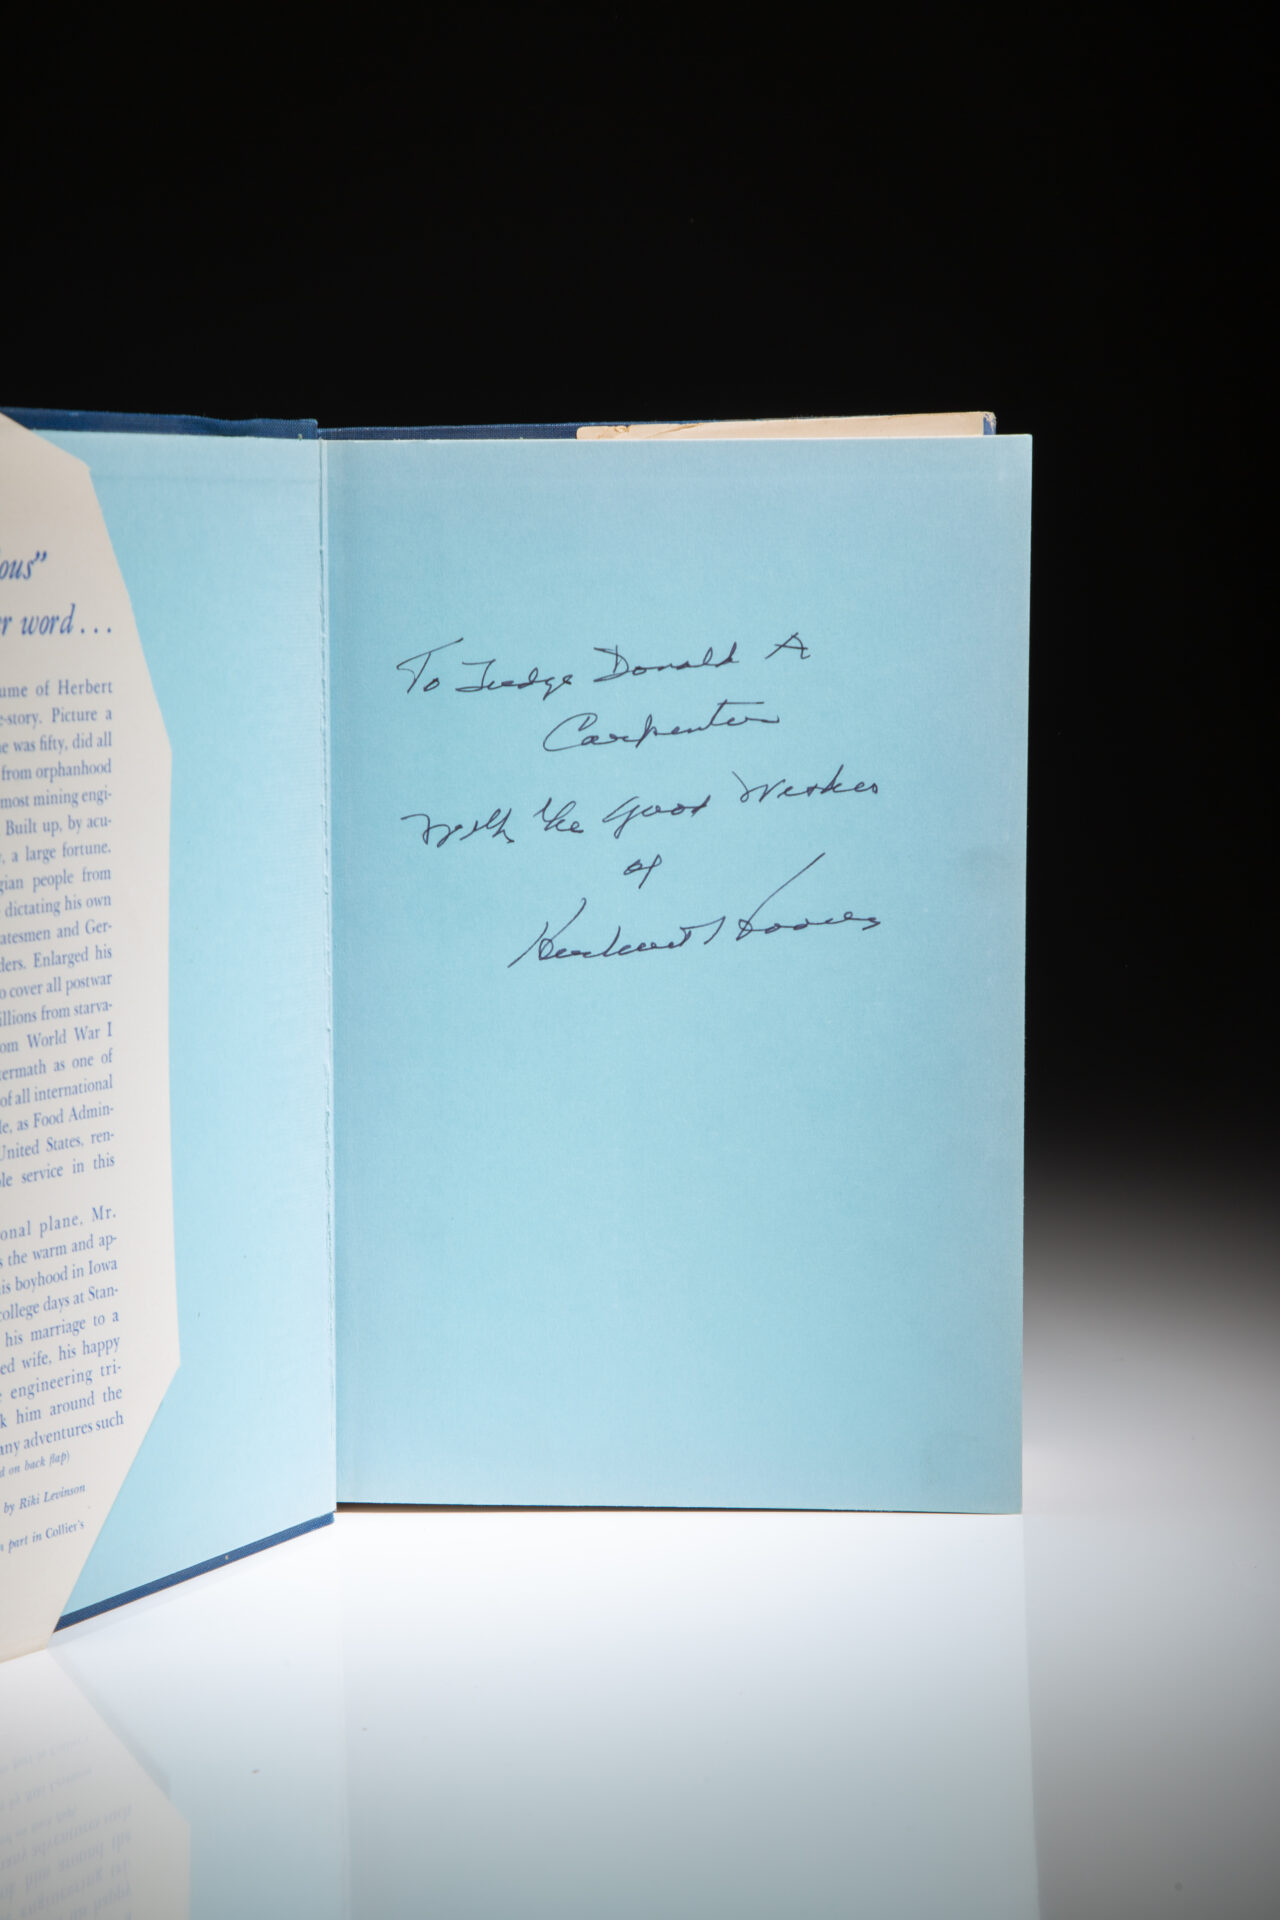 ous”
r word . . .
ume of Herbert
-story. Picture a
e was fifty, did all
from orphanhood
most mining engi-
Built up, by acu-
, a large fortune.
gian people from
dictating his own
atesmen and Ger-
ders. Enlarged his
o cover all postwar
illions from starva-
om World War I
termath as one of
of all international
le, as Food Admin-
United States, ren-
le service in this
onal plane, Mr.
s the warm and ap-
is boyhood in Iowa
college days at Stan-
his marriage to a
ed wife, his happy
engineering tri-
k him around the
any adventures such
d on back flap)
by Riki Levinson
part in Collier's
To Judge Donald A
Carpenter
With the Good Wishes
of
Herbert Hoover